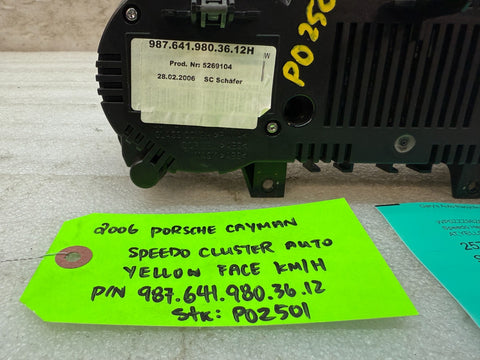 987.641.980.36.12H
Prod. Nr: 5269104
28.02.2006 SC Schäfer
W
PO250
2006 PORSCHE CAYMAN
SPEEDO CLUSTER AUTO
YELLOW FACE KM/H
P/N 987.641.980.36.12
Stk: PO2501
Speedo
AT.YELL